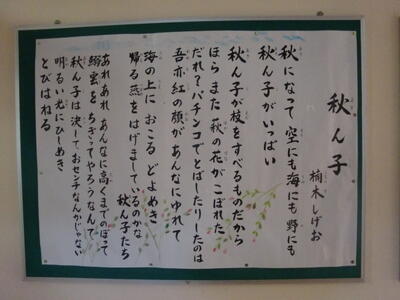 秋ん子
楠木しげお
秋になって 空にも海にも野にも
秋ん子がいっぱい
秋ん子が枝をすべるものだから
ほら また 萩の花がこぼれた
だれ?パチンコでとばしたりしたのは
吾亦紅の顔があんなにゆれて
海の上に おこる どよめき
帰る燕をはげましているのかな
秋ん子たち
あれあれ あんなに高くまでのぼって
鰯雲を ちぎってやろうなんて
秋ん子は決して、おセンチなんかじゃない
明るい光にひしめき
とびはねる